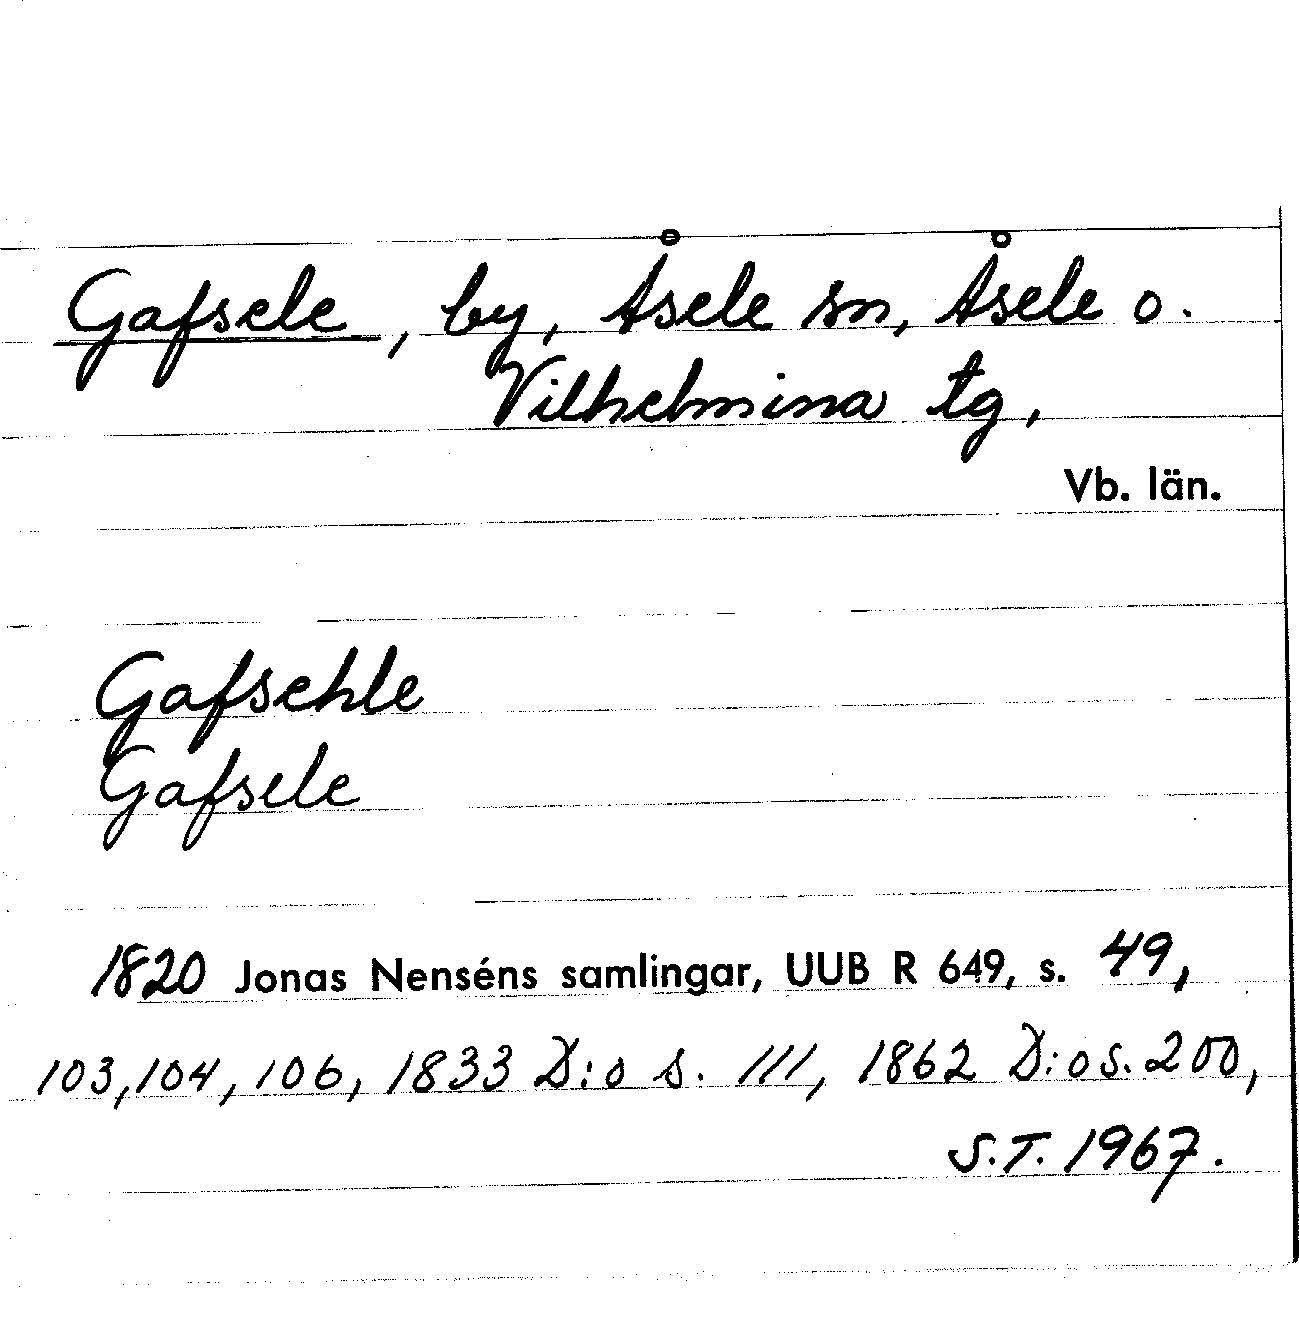 Gafsele, by, Åsele sn, Åsele o.
Vilhelmina tg,
Vb. län.
Gafsehle
Gafsele
1820 Jonas Nenséns samlingar, UUB R 649, s. 49,
103, 104, 106, 1833 D:o s. 111, 1862 D:o s. 200,
S.T. 1967.